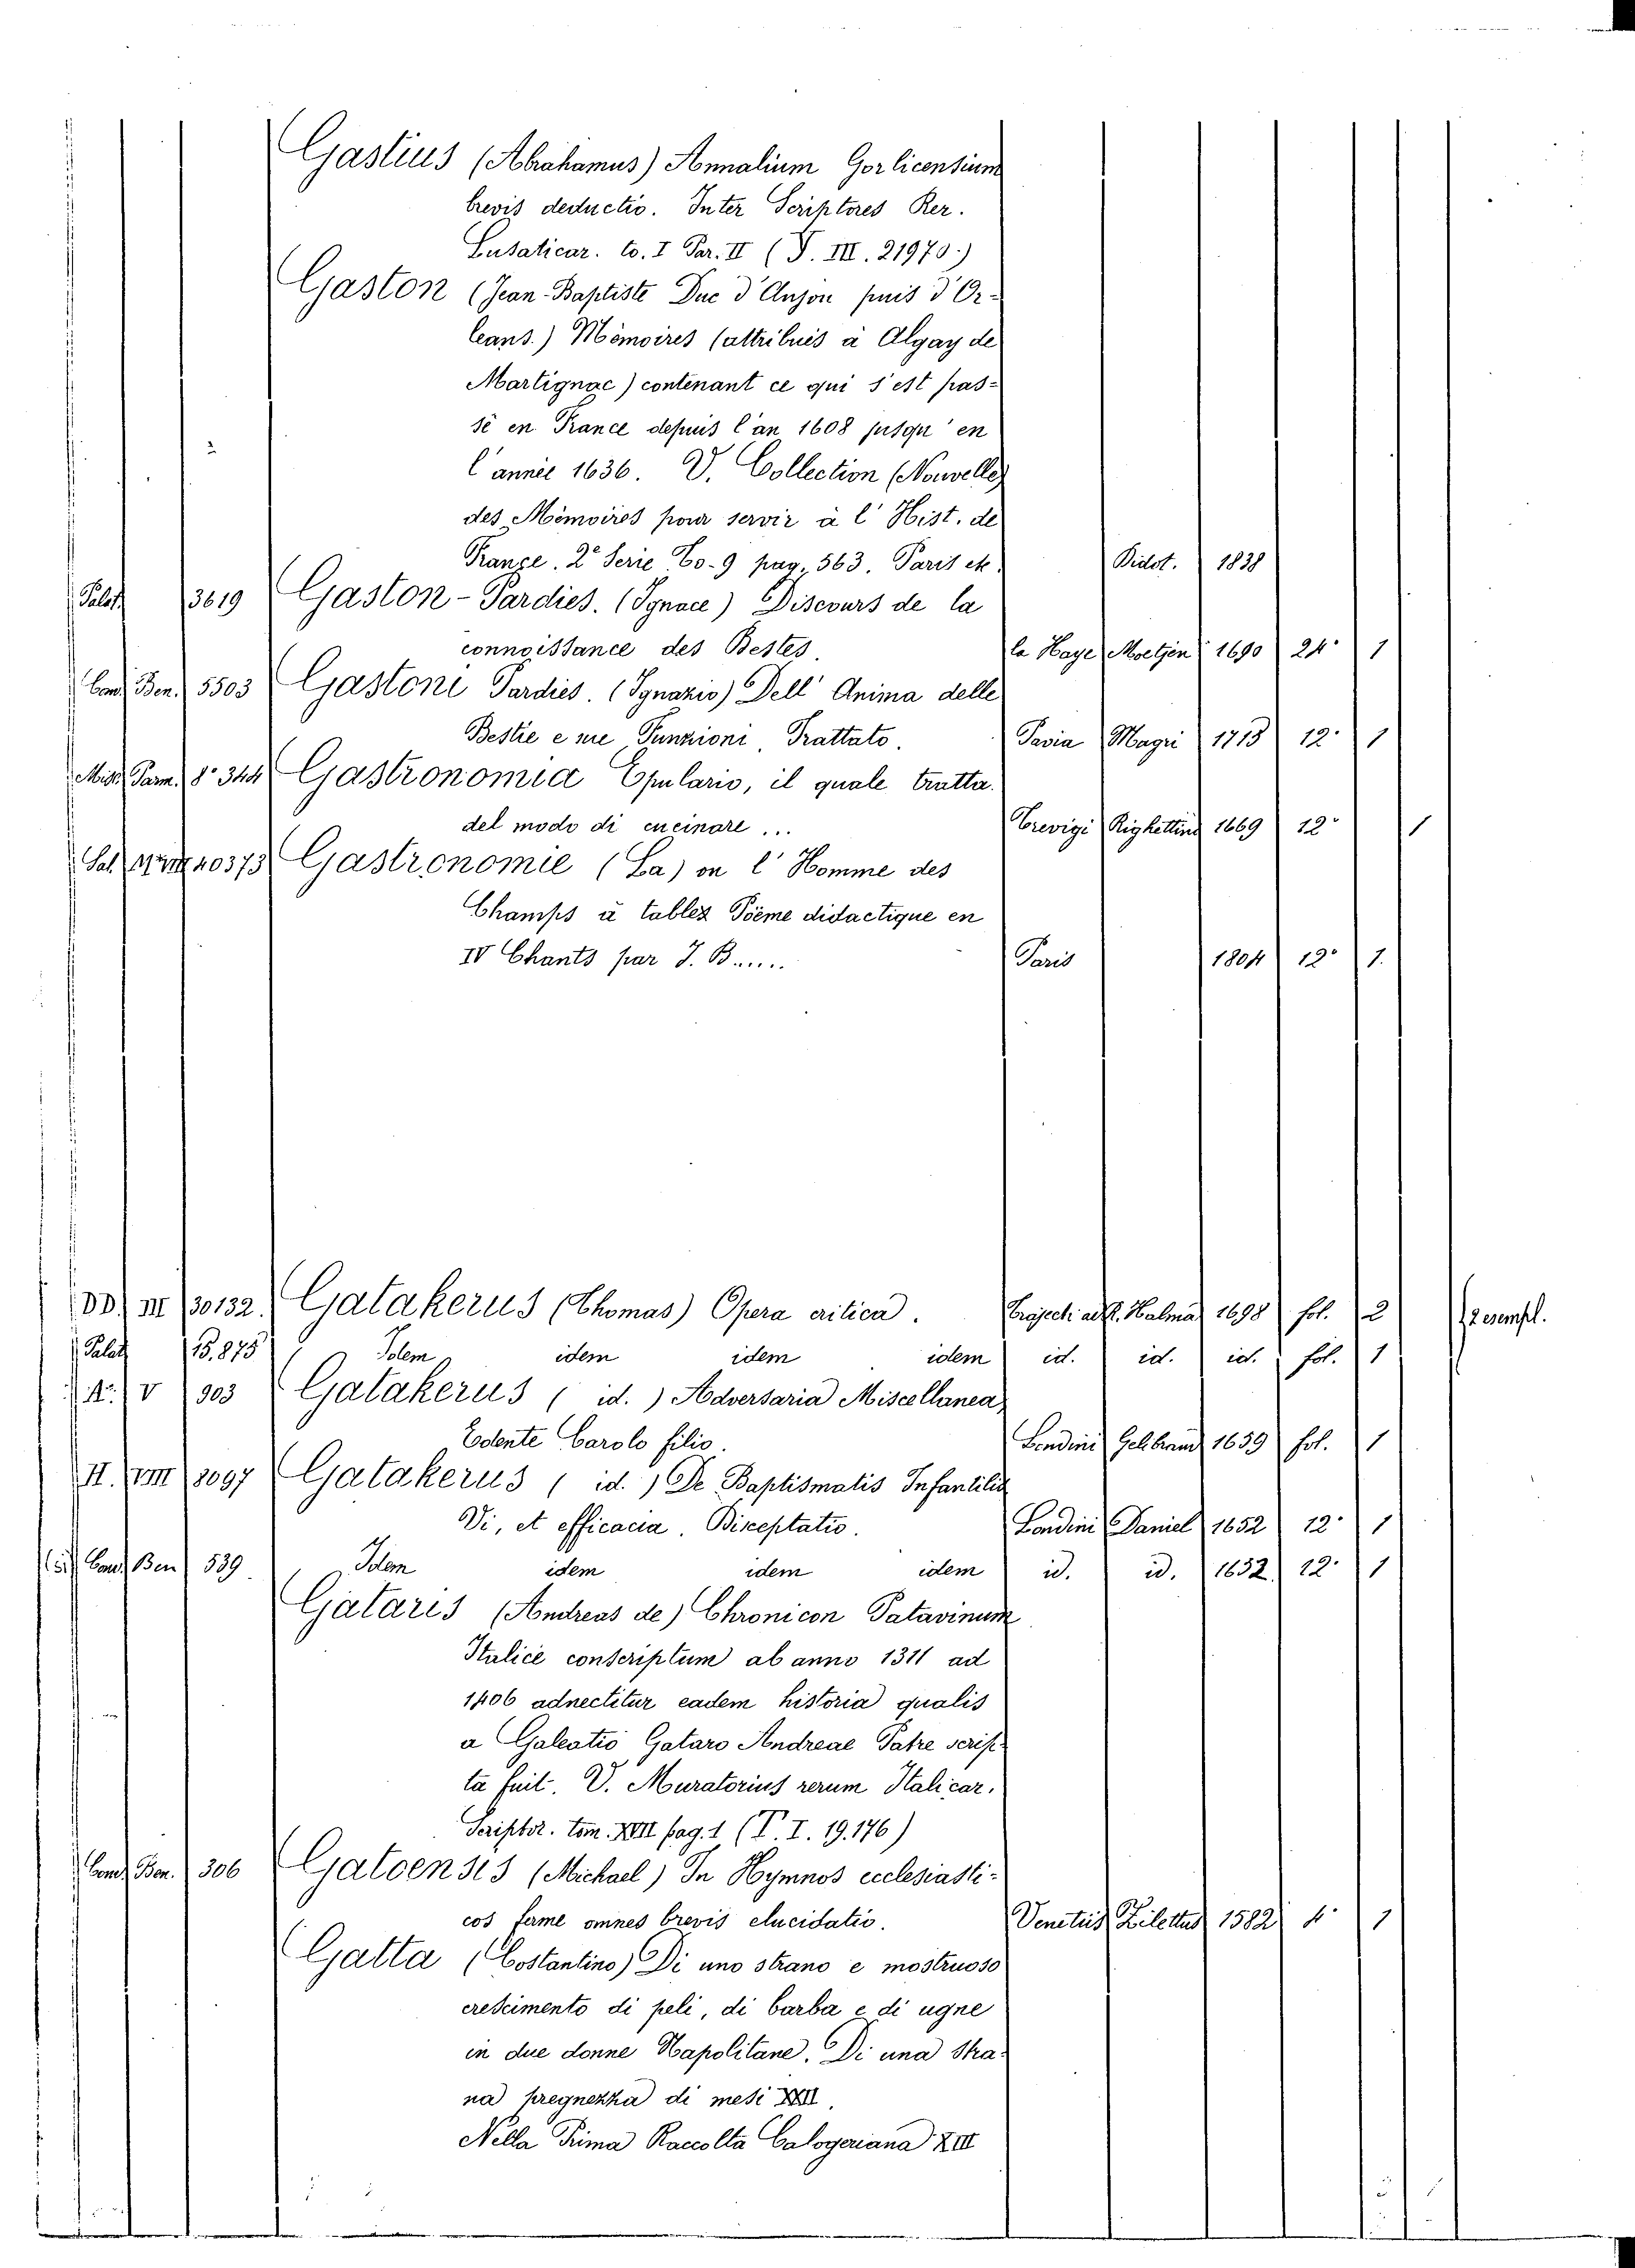 Gastius (Abrahamus) Annalium Gorlicensium
brevis deductio. Inter Scriptores Rer.
Lusaticar. to. I Par. II (V. III. 21970.)
Gaston (Jean-Baptiste Duc d'Anjou puis d'Or-
leans.) Mémoires (attribués à Algay de
Martignac) contenant ce qui s'est pas-
sé en France depuis l'an 1608 jusqu'en
l'année 1636. V. Collection (Nouvelle)
des Mémoires pour servir à l'Hist. de
France. 2e Serie To. 9 pag. 563. Paris etc. Didot. 1838
Palat. 13619 Gaston-Pardies. (Ignace) Discours de la
connoissance des Bestes. la Haye Moetjen 1690 24° 1
Cons. Ben. 5503 Gastoni Pardies. (Ignazio) Dell' Anima delle
Bestie e sue Funzioni, Trattato. Pavia Magri 1713 12° 1
Misc. Parm. 8° 344 Gastronomia Epulario, il quale tratta
del modo di cucinare ... Trevigi Righettini 1669 12° 1
Sal. 20373 Gastronomie (La) ou l'Homme des
Champs à tablez Poëme didactique en
IV Chants par J. B..... Paris 1804 12° 1.
DD. III 30132. Gatakerus (Thomas) Opera critica. Trajecti ad R. Halma 1698 fol. 2 2 esempl.
Palat. 15.875 Idem idem idem idem id. id. id. fol. 1
A. V 903 Gatakerus (id.) Adversaria Miscellanea,
Edente Carolo filio. Londini Gelibrand 1659 fol. 1
II. VIII 8097 Gatakerus (id.) De Baptismatis Infantilis
Vi, et efficacia. Disceptatio. Londini Daniel 1652 12° 1
Cons. Ben 539 Idem idem idem idem id. id. 1652 12° 1
Gataris (Andreas de) Chronicon Patavinum
Italice conscriptum ab anno 1311 ad
1406 adnectitur eadem historia qualis
a Galeatio Gataro Andreae Patre scrip-
ta fuit. V. Muratorius rerum Italicar.
Scriptor. tom. XVII pag. 1 (T. I. 19.176)
Cons. Ben. 306 Gatoensis (Michael) In Hymnos ecclesiasti-
cos ferme omnes brevis elucidatio. Venetiis Zilettus 1582 4° 1
Gatta (Costantino) Di uno strano e mostruoso
crescimento di peli, di barba e di ugne
in due donne Napolitane. Di una stra-
na pregnezza di mesi XXII.
Nella Prima Raccolta Calogeriana XIII